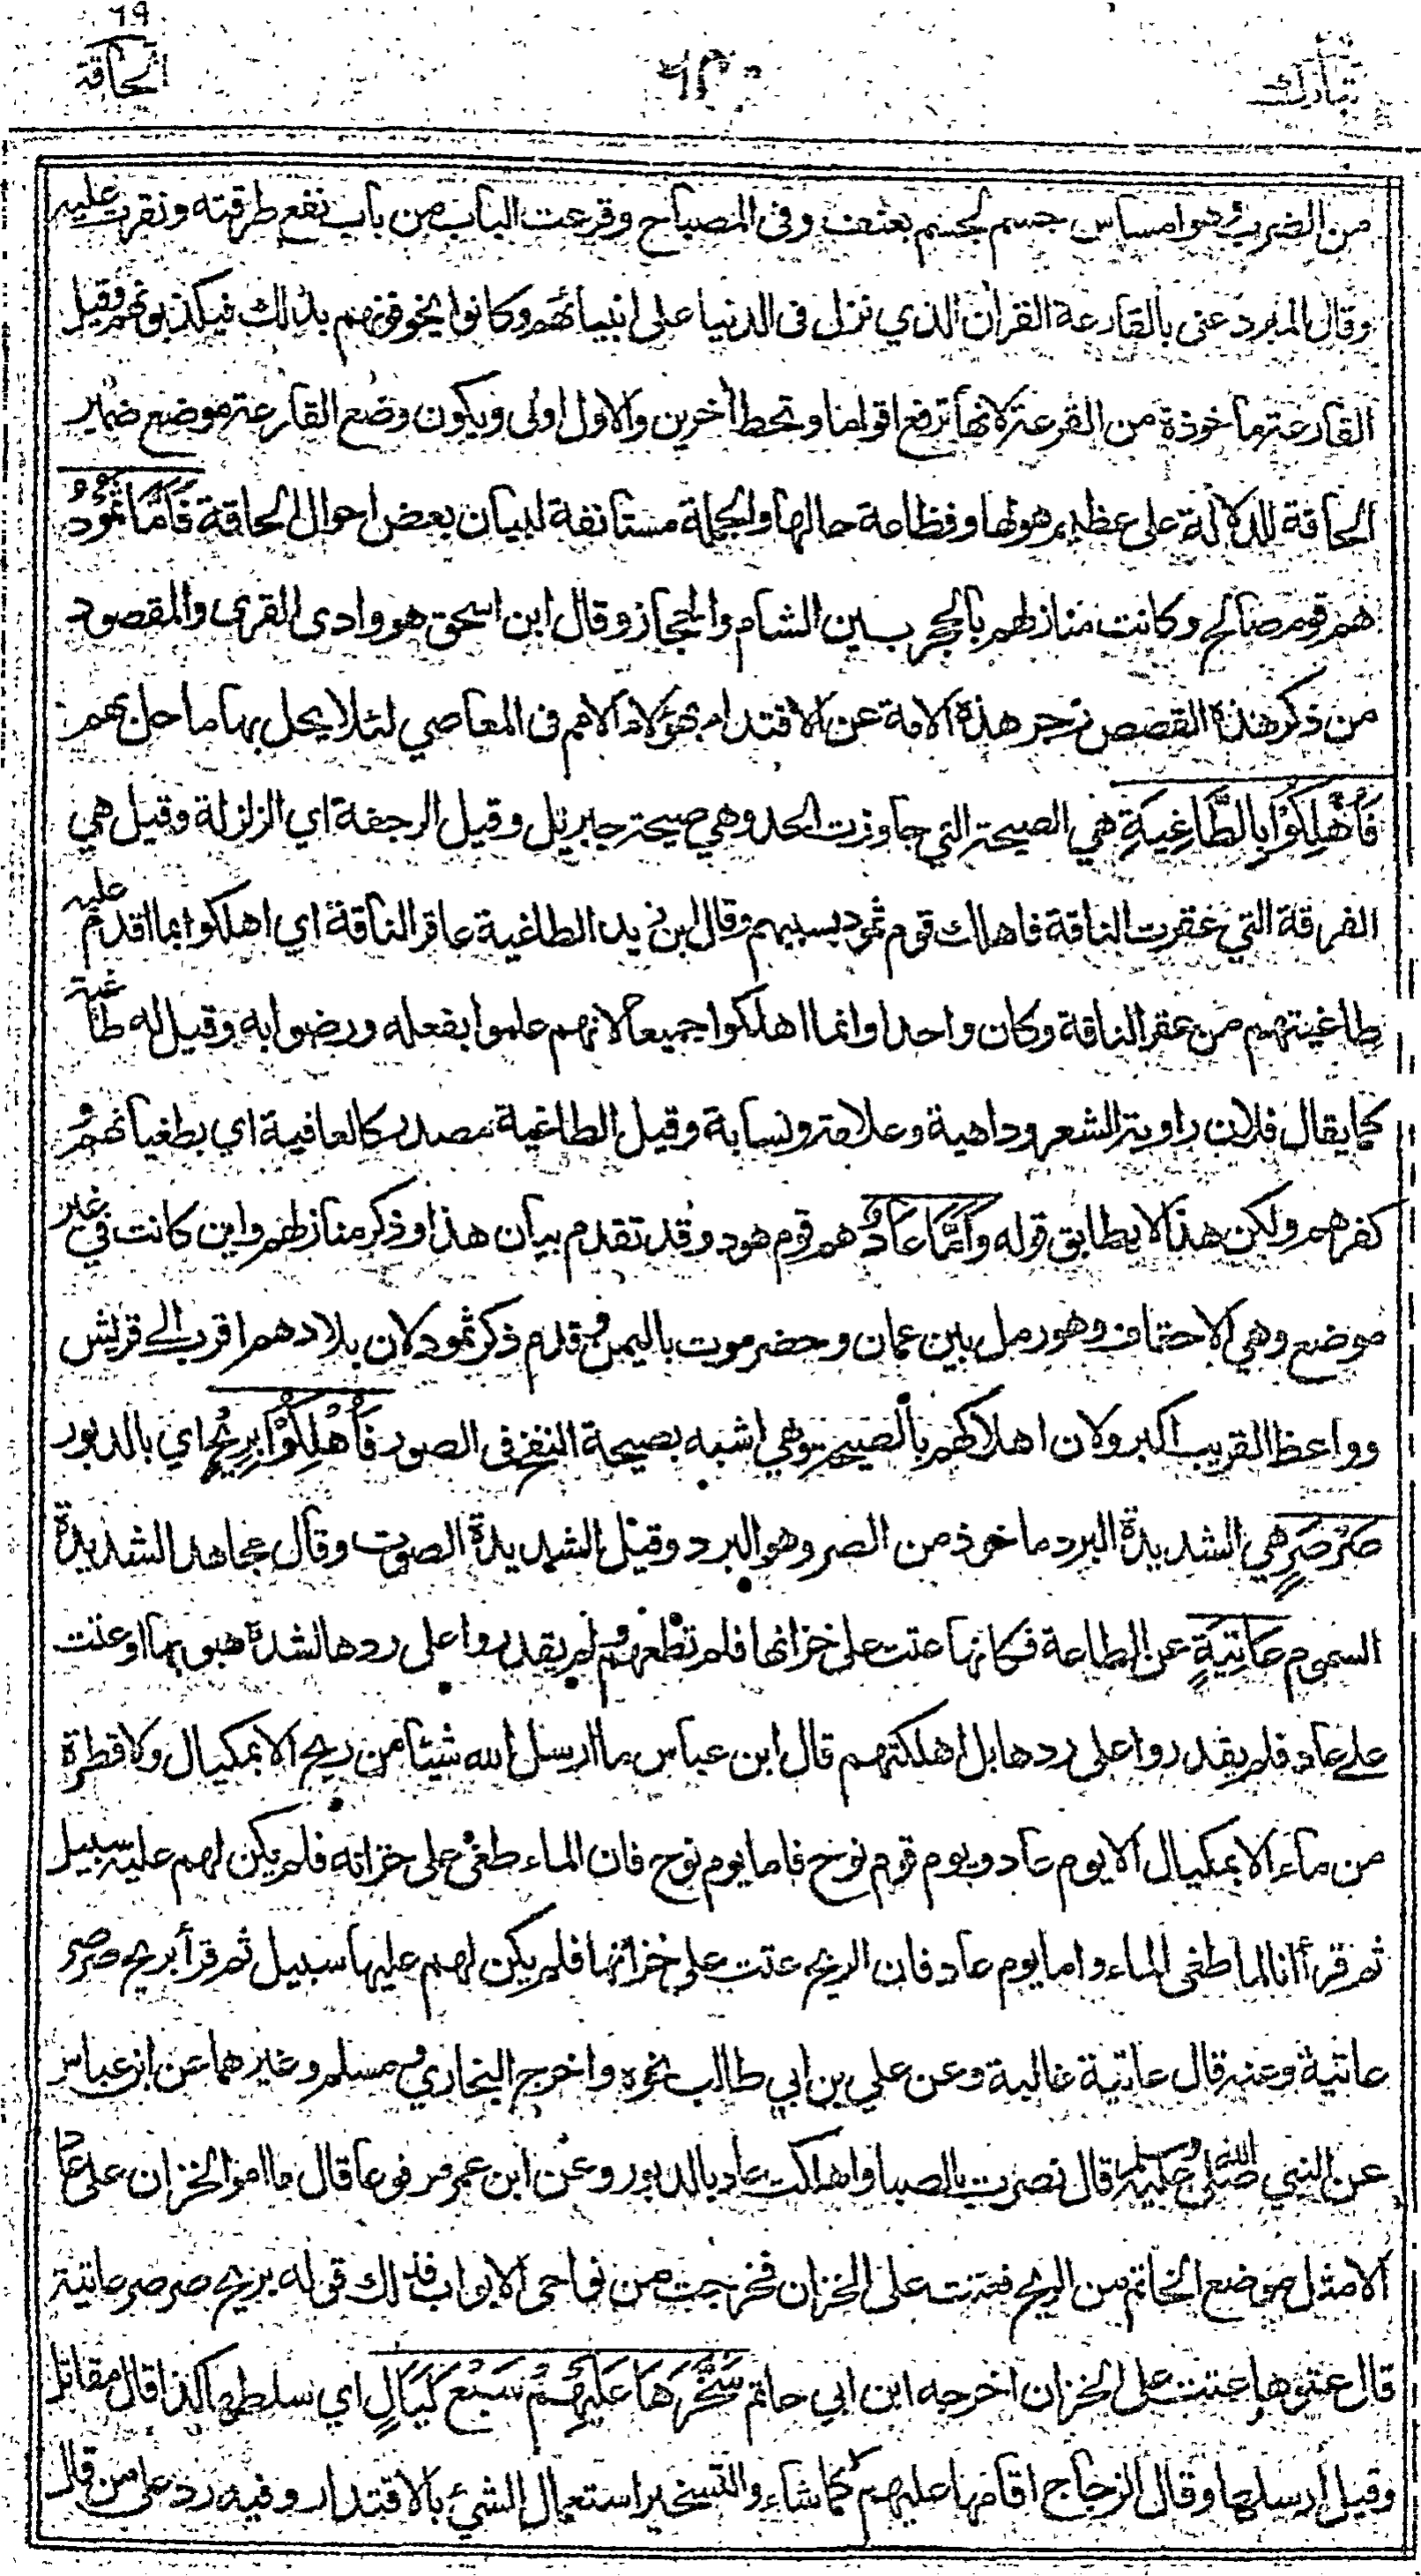 تبارك ٦٤٠ الحاقة ٦٩
من الضرب هو امساس جسم لجسم بعنف وفى المصباح وقرعت الباب من باب نفع طرقته ونقرت عليه
وقال المبرد عنى بالقارعة القرآن الذي نزل فى الدنيا على انبيائهم وكانوا يخوفونهم بذلك فيكذبونهم وقيل
القارعة ماخوذة من القرعة لانها ترفع اقواما وتحط آخرين والاول اولى ويكون وضع القارعة موضع ضمير
الحاقة للدلالة على عظيم هولها وفظاعة حالها والجملة مستانفة لبيان بعض احوال الحاقة فَاَمَّا ثَمُوْدُ
هم قوم صالح وكانت منازلهم بالحجر بين الشام والحجاز وقال ابن اسحق هو وادى القرى والمقصود
من ذكر هذه القصص زجر هذه الامة عن الاقتداء بهؤلاء الامم فى المعاصي لئلا يحل بها ما حل بهم
فَاُهْلِكُوْا بِالطَّاغِيَةِ هي الصيحة التي جاوزت الحد وهي صيحة جبريل وقيل الرجفة اي الزلزلة وقيل هي
الفرقة التي عقرت الناقة فاهلك قوم ثمود بسببهم وقال ابن زيد الطاغية عاقر الناقة اي اهلكوا بما اقدم عليه
طاغيتهم من عقر الناقة وكان واحدا وانما اهلكوا جميعا لانهم علموا بفعله ورضوا به وقيل له طاغية
كما يقال فلان راوية الشعر وداهية وعلامة ونسابة وقيل الطاغية مصدر كالعافية اي بطغيانهم و
كفرهم ولكن هذا لا يطابق قوله وَاَمَّا عَادٌ هم قوم هود وقد تقدم بيان هذا وذكر منازلهم واين كانت في غير
موضع وهي الاحقاف وهو رمل بين عمان وحضرموت باليمن وقدم ذكر ثمود لان بلادهم اقرب الى قريش
وواعظ القريب اكبر ولان اهلاكهم بالصيحة وهي اشبه بصيحة النفخ فى الصور فَاُهْلِكُوْا بِرِيْحٍ اي بالدبور
صَرْصَرٍ هي الشديدة البرد ماخوذ من الصر وهو البرد وقيل الشديدة الصوت وقال مجاهد الشديدة
السموم عَاتِيَةٍ عن الطاعة فكانها عتت على خزانها فلم تطعهم ولم يقدروا على ردها لشدة هبوبها او عتت
على عاد فلم يقدروا على ردها بل اهلكتهم قال ابن عباس ما ارسل الله شيئا من ريح الا بمكيال ولا قطرة
من ماء الا بمكيال الا يوم عاد ويوم قوم نوح فاما يوم نوح فان الماء طغى على خزانه فلم يكن لهم عليه سبيل
ثم قرأ انا لما طغى الماء واما يوم عاد فان الريح عتت على خزانها فلم يكن لهم عليها سبيل ثم قرأ بريح صرصر
عاتية وعنه قال عاتية غالبة وعن علي بن ابي طالب نحوه واخرج البخاري ومسلم وغيرهما عن ابن عباس
عن النبي صلى الله عليه وسلم قال نصرت بالصبا واهلكت عاد بالدبور وعن ابن عمر مرفوعا قال ما امر الخزان على عاد
الا مثل موضع الخاتم من الريح فعتت على الخزان فخرجت من نواحى الابواب فذلك قوله بريح صرصر عاتية
قال عتوها عتت على الخزان اخرجه ابن ابي حاتم سَخَّرَهَا عَلَيْهِمْ سَبْعَ لَيَالٍ اي سلطها كذا قال مقاتل
وقيل ارسلها وقال الزجاج اقامها عليهم كما شاء والتسخير استعمال الشئ بالاقتدار وفيه رد على من قال